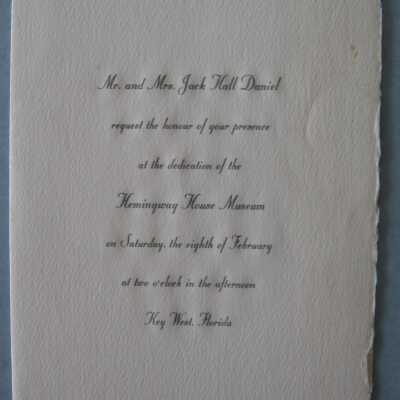 Mr. and Mrs. Jack Hall Daniel
request the honour of your presence
at the dedication of the
Hemingway House Museum
on Saturday, the eighth of February
at two o'clock in the afternoon
Key West, Florida